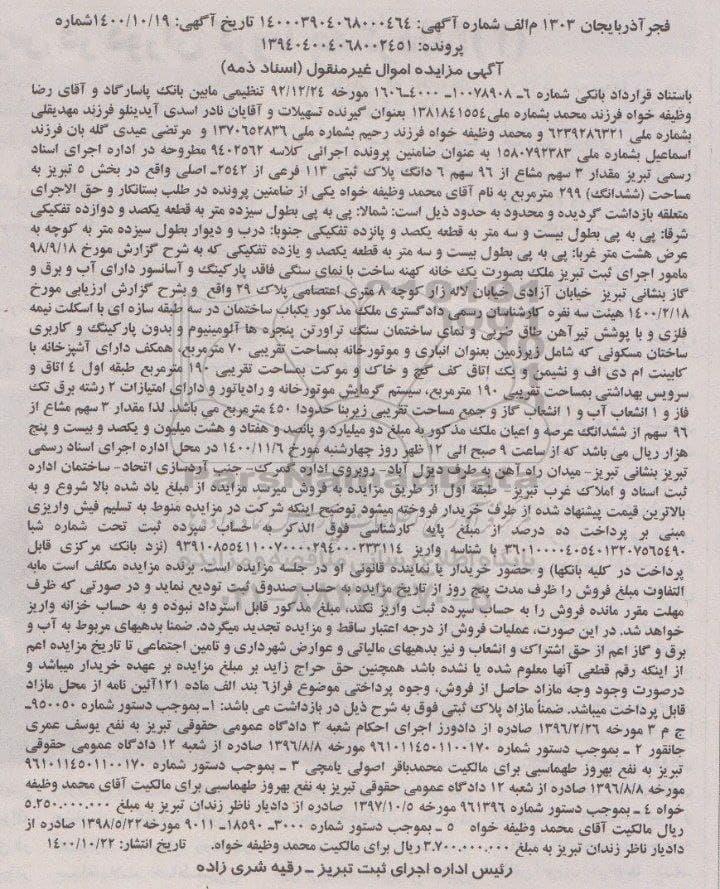 فجر آذربایجان ۱۳۰۳ م/الف شماره آگهی: ۱۴۰۰۰۳۹۰۴۰۶۸۰۰۰۴۶۴ تاریخ آگهی: ۱۴۰۰/۱۰/۱۹شماره
پرونده: ۱۳۹۴۰۴۰۰۴۰۶۸۰۰۲۴۵۱
آگهی مزایده اموال غیرمنقول (اسناد ذمه)
باستناد قرارداد بانکی شماره ۶ـ ۱۰۰۷۸۹۰۸ـ ۴۰۰۰ـ۱۶۰۶ مورخه ۹۲/۱۲/۲۴ تنظیمی مابین بانک پاسارگاد و آقای رضا
وظیفه خواه فرزند محمد بشماره ملی۱۳۸۱۸۴۱۵۵۴ بعنوان گیرنده تسهیلات و آقایان نادر اسدی آیدینلو فرزند مهدیقلی
بشماره ملی ۶۲۳۹۲۸۶۳۲۱ و محمد وظیفه خواه فرزند رحیم بشماره ملی ۱۳۷۰۶۵۲۸۳۶ و مرتضی عبدی گله بان فرزند
اسماعیل بشماره ملی ۱۵۸۰۷۹۲۳۸۳ به عنوان ضامنین پرونده اجرائی کلاسه ۹۴۰۲۵۶۲ مطروحه در اداره اجرای اسناد
رسمی تبریز مقدار ۳ سهم مشاع از ۹۶ سهم ۶ دانگ پلاک ثبتی ۱۱۳ فرعی از ۲۵۴۲ـ اصلی واقع در بخش ۵ تبریز به
مساحت (ششدانگ) ۲۹۹ مترمربع به نام آقای محمد وظیفه خواه یکی از ضامنین پرونده در طلب بستانکار و حق الاجرای
متعلقه بازداشت گردیده و محدود به حدود ذیل است: شمالا: پی به پی بطول سیزده متر به قطعه یکصد و دوازده تفکیکی
شرقا: پی به پی بطول بیست و سه متر به قطعه یکصد و پانزده تفکیکی جنوبا: درب و دیوار بطول سیزده متر به کوچه به
عرض هشت متر غربا: پی به پی بطول بیست و سه متر به قطعه یکصد و یازده تفکیکی که به شرح گزارش مورخ ۹۸/۹/۱۸
مامور اجرای ثبت تبریز ملک بصورت یک خانه کهنه ساخت با نمای سنگی فاقد پارکینگ و آسانسور دارای آب و برق و
گاز بنشانی تبریز خیابان آزادی خیابان لاله زار کوچه ۸ متری اعتصامی پلاک ۲۹ واقع و بشرح گزارش ارزیابی مورخ
۱۴۰۰/۲/۱۸ هیئت سه نفره کارشناسان رسمی دادگستری ملک مذکور یکباب ساختمان در سه طبقه سازه ای با اسکلت نیمه
فلزی و با پوشش تیرآهن طاق ضربی و نمای ساختمان سنگ تراورتن پنجره ها آلومینیوم و بدون پارکینگ و کاربری
ساختان مسکونی که شامل زیرزمین بعنوان انباری و موتورخانه بمساحت تقریبی ۷۰ مترمربع، همکف دارای آشپزخانه با
کابینت ام دی اف و نشیمن و یک اتاق کف گچ و خاک و موکت بمساحت تقریبی ۱۹۰ مترمربع طبقه اول ۴ اتاق و
سرویس بهداشتی بمساحت تقریبی ۱۹۰ مترمربع، سیستم گرمایش موتورخانه و رادیاتور و دارای امتیازات ۲ رشته برق تک
فاز و ۱ انشعاب آب و ۱ انشعاب گاز و جمع مساحت تقریبی زیربنا حدودا ۴۵۰ مترمربع می باشد. لذا مقدار ۳ سهم مشاع از
۹۶ سهم از ششدانگ عرصه و اعیان ملک مذکور به مبلغ دو میلیارد و پانصد و هفتاد و هشت میلیون و یکصد و بیست و پنج
هزار ریال می باشد که از ساعت ۹ صبح الی ۱۲ ظهر روز چهارشنبه مورخ ۱۴۰۰/۱۱/۶ در محل اداره اجرای اسناد رسمی
تبریز بنشانی تبریز- میدان راه آهن به طرف دیزل آباد- روبروی اداره گمرک- جنب آردسازی اتحاد- ساختمان اداره
ثبت اسناد و املاک غرب تبریز- طبقه اول از طریق مزایده به فروش میرسد مزایده از مبلغ یاد شده بالا شروع و به
بالاترین قیمت پیشنهاد شده از طرف خریدار فروخته میشود توضیح اینکه شرکت در مزایده منوط به تسلیم فیش واریزی
مبنی بر پرداخت ده درصد از مبلغ پایه کارشناسی فوق الذکر به حساب سپرده ثبت تحت شماره شبا
۳۶۰۱۰۰۰۰۴۰۵۴۰۱۳۲۰۷۵۶۵۴۹۰ با شناسه واریز ۹۳۹۱۰۸۵۵۴۱۱۰۰۷۰۰۰۰۲۹۴۰۰۰۲۳۳۱۱۴ (نزد بانک مرکزی قابل
پرداخت در کلیه بانکها) و حضور خریدار یا نماینده قانونی او در جلسه مزایده است. برنده مزایده مکلف است مابه
التفاوت مبلغ فروش را ظرف مدت پنج روز از تاریخ مزایده به حساب صندوق ثبت تودیع نماید و در صورتی که ظرف
مهلت مقرر مانده فروش را به حساب سپرده ثبت واریز نکند، مبلغ مذکور قابل استرداد نبوده و به حساب خزانه واریز
خواهد شد. در این صورت، عملیات فروش از درجه اعتبار ساقط و مزایده تجدید میگردد. ضمنا بدهیهای مربوط به آب و
برق و گاز اعم از حق اشتراک و انشعاب و نیز بدهیهای مالیاتی و عوارض شهرداری و تامین اجتماعی تا تاریخ مزایده اعم
از اینکه رقم قطعی آنها معلوم شده یا نشده باشد همچنین حق حراج زاید بر مبلغ مزایده بر عهده خریدار میباشد و
درصورت وجود وجه مازاد حاصل از فروش، وجوه پرداختی موضوع فراز۶ بند الف ماده ۱۲۱آئین نامه از محل مازاد
قابل پرداخت میباشد. ضمناً مازاد پلاک ثبتی فوق به شرح ذیل در بازداشت می باشد: ۱ـ بموجب دستور شماره ۹۵۰۰۵۰ـ
ج م ۳ مورخه ۱۳۹۶/۲/۲۶ صادره از دادورز اجرای احکام شعبه ۳ دادگاه عمومی حقوقی تبریز به نفع یوسف عمری
جانقور ۲ ـ بموجب دستور شماره ۹۶۱۰۱۱۴۵۰۱۱۰۰۱۷۰ مورخه ۱۳۹۶/۸/۸ صادره از شعبه ۱۲ دادگاه عمومی حقوقی
تبریز به نفع بهروز طهماسبی برای مالکیت محمدباقر اصولی یامچی ۳ ـ بموجب دستور شماره ۹۶۱۰۱۱۴۵۰۱۱۰۰۱۷۰
مورخه ۱۳۹۶/۸/۸ صادره از شعبه ۱۲ دادگاه عمومی حقوقی تبریز به نفع بهروز طهماسبی برای مالکیت آقای محمد وظیفه
خواه ۴ ـ بموجب دستور شماره ۹۶۱۳۹۶ مورخه ۱۳۹۷/۱۰/۵ صادره از دادیار ناظر زندان تبریز به مبلغ ۵.۲۵۰.۰۰۰.۰۰۰
ریال مالکیت آقای محمد وظیفه خواه ۵ ـ بموجب دستور شماره ۳۰۰۰ـ ۱۸۵۹۰ـ ۹۰۱۱ مورخه۱۳۹۸/۵/۲۲ صادره از
دادیار ناظر زندان تبریز به مبلغ ۳.۷۰۰.۰۰۰.۰۰۰ ریال برای مالکیت محمد وظیفه خواه. تاریخ انتشار: ۱۴۰۰/۱۰/۲۲
رئیس اداره اجرای ثبت تبریز ـ رقیه شری زاده
ParsNamadData